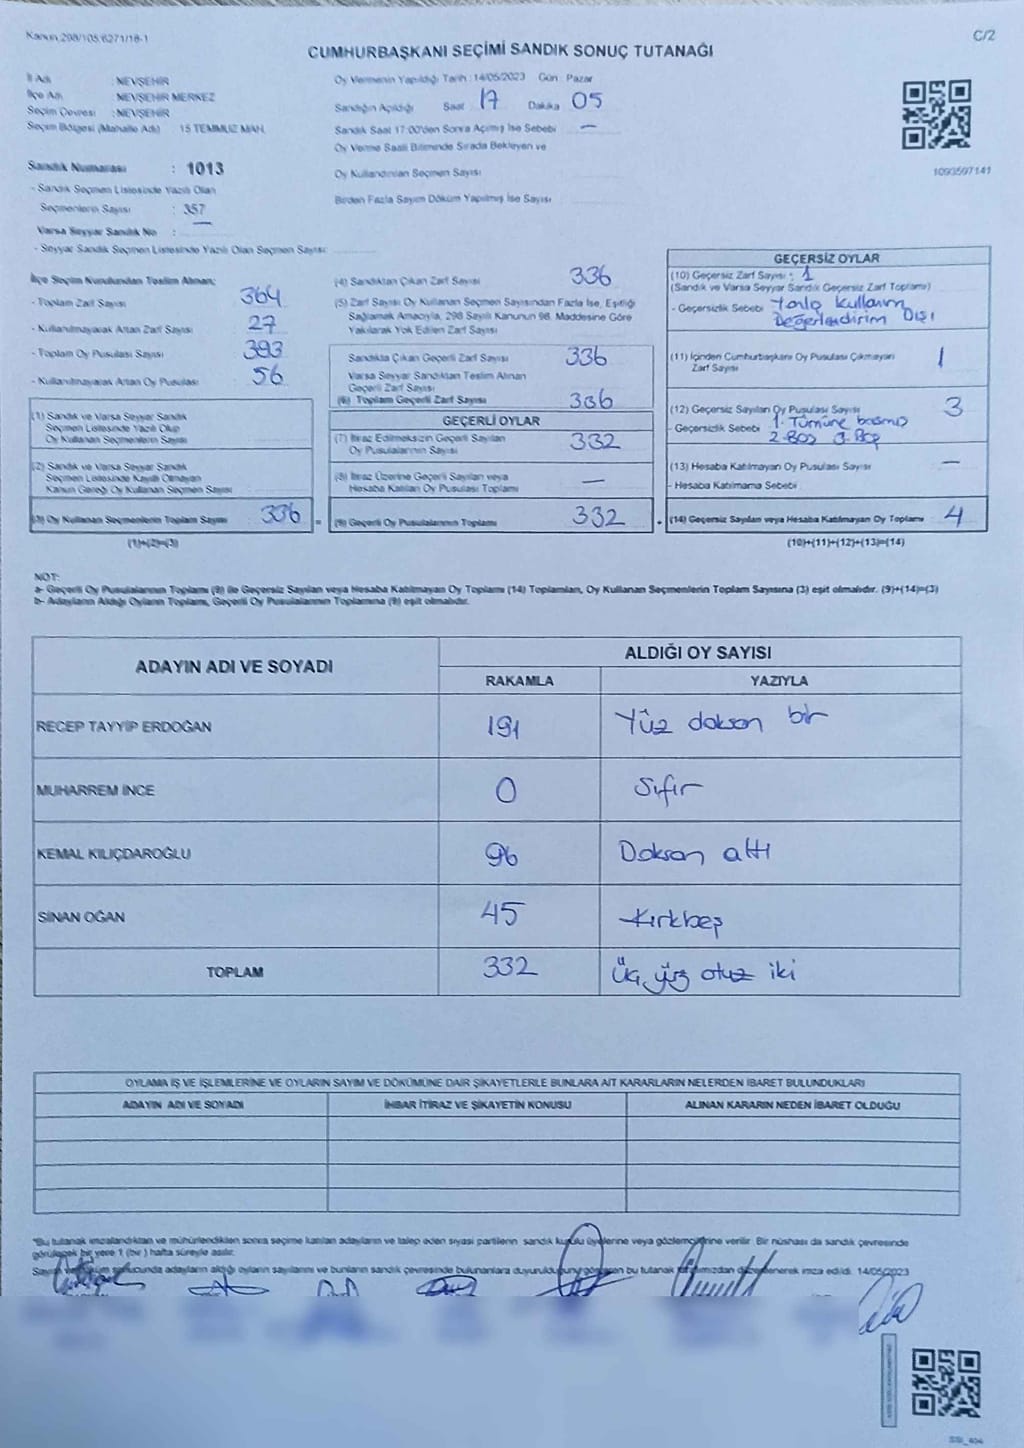 Kanun 298/105 6271/18-1
C/2
CUMHURBAŞKANI SEÇİMİ SANDIK SONUÇ TUTANAĞI
İl Adı : NEVŞEHİR
İlçe Adı : NEVŞEHİR MERKEZ
Seçim Çevresi : NEVŞEHİR
Seçim Bölgesi (Mahalle Adı) 15 TEMMUZ MAH.
Oy Vermenin Yapıldığı Tarih : 14/05/2023 Gün : Pazar
Sandığın Açıldığı Saat 17 Dakika 05
Sandık Saat 17:00'den Sonra Açılmış İse Sebebi —
Oy Verme Saati Bitiminde Sırada Bekleyen ve
Oy Kullandırılan Seçmen Sayısı
Birden Fazla Sayım Döküm Yapılmış İse Sayısı
1093597141
Sandık Numarası : 1013
- Sandık Seçmen Listesinde Yazılı Olan
Seçmenlerin Sayısı : 357
Varsa Seyyar Sandık No : —
- Seyyar Sandık Seçmen Listesinde Yazılı Olan Seçmen Sayısı
İlçe Seçim Kurulundan Teslim Alınan;
- Toplam Zarf Sayısı 364
- Kullanılmayarak Artan Zarf Sayısı 27
- Toplam Oy Pusulası Sayısı 393
- Kullanılmayarak Artan Oy Pusulası 56
(1) Sandık ve Varsa Seyyar Sandık
Seçmen Listesinde Yazılı Olup
Oy Kullanan Seçmenlerin Sayısı
(2) Sandık ve Varsa Seyyar Sandık
Seçmen Listesinde Kayıtlı Olmayan
Kanun Gereği Oy Kullanan Seçmen Sayısı
(3) Oy Kullanan Seçmenlerin Toplam Sayısı 336 =
(1)+(2)=(3)
(4) Sandıktan Çıkan Zarf Sayısı 336
(5) Zarf Sayısı Oy Kullanan Seçmen Sayısından Fazla İse, Eşitliği
Sağlamak Amacıyla, 298 Sayılı Kanunun 98. Maddesine Göre
Yakılarak Yok Edilen Zarf Sayısı
Sandıkta Çıkan Geçerli Zarf Sayısı 336
Varsa Seyyar Sandıktan Teslim Alınan
Geçerli Zarf Sayısı
(6) Toplam Geçerli Zarf Sayısı 336
GEÇERLİ OYLAR
(7) İtiraz Edilmeksizin Geçerli Sayılan
Oy Pusulalarının Sayısı 332
(8) İtiraz Üzerine Geçerli Sayılan veya
Hesaba Katılan Oy Pusulası Toplamı —
(9) Geçerli Oy Pusulalarının Toplamı 332 +
GEÇERSİZ OYLAR
(10) Geçersiz Zarf Sayısı : 1
(Sandık ve Varsa Seyyar Sandık Geçersiz Zarf Toplamı)
- Geçersizlik Sebebi kullanım
Değerlendirim Dışı
(11) İçinden Cumhurbaşkanı Oy Pusulası Çıkmayan
Zarf Sayısı 1
(12) Geçersiz Sayılan Oy Pusulası Sayısı 3
- Geçersizlik Sebebi 1. Tümüne basmış
2. Boş 3. Boş
(13) Hesaba Katılmayan Oy Pusulası Sayısı —
- Hesaba Katılmama Sebebi
(14) Geçersiz Sayılan veya Hesaba Katılmayan Oy Toplamı 4
(10)+(11)+(12)+(13)=(14)
NOT:
a- Geçerli Oy Pusulalarının Toplamı (9) ile Geçersiz Sayılan veya Hesaba Katılmayan Oy Toplamı (14) Toplamları, Oy Kullanan Seçmenlerin Toplam Sayısına (3) eşit olmalıdır. (9)+(14)=(3)
b- Adayların Aldığı Oyların Toplamı, Geçerli Oy Pusulalarının Toplamına (9) eşit olmalıdır.
ADAYIN ADI VE SOYADI
ALDIĞI OY SAYISI
RAKAMLA YAZIYLA
RECEP TAYYİP ERDOĞAN 191 Yüz doksan bir
MUHARREM İNCE 0 Sıfır
KEMAL KILIÇDAROĞLU 96 Doksan altı
SİNAN OĞAN 45 Kırkbeş
TOPLAM 332 Üç yüz otuz iki
OYLAMA İŞ VE İŞLEMLERİNE VE OYLARIN SAYIM VE DÖKÜMÜNE DAİR ŞİKAYETLERLE BUNLARA AİT KARARLARIN NELERDEN İBARET BULUNDUKLARI
ADAYIN ADI VE SOYADI İHBAR İTİRAZ VE ŞİKAYETİN KONUSU ALINAN KARARIN NEDEN İBARET OLDUĞU
"Bu tutanak imzalandıktan ve mühürlendikten sonra seçime katılan adayların ve talep eden siyasi partilerin sandık kurulu üyelerine veya gözlemcilerine verilir. Bir nüshası da sandık çevresinde
görülecek bir yere 1 (bir) hafta süreyle asılır.
Sayım döküm sonucunda adayların aldığı oyların sayılarını ve bunların sandık çevresinde bulunanlara duyurulduğunu gösteren bu tutanak tarafımızdan düzenlenerek imza edildi. 14/05/2023